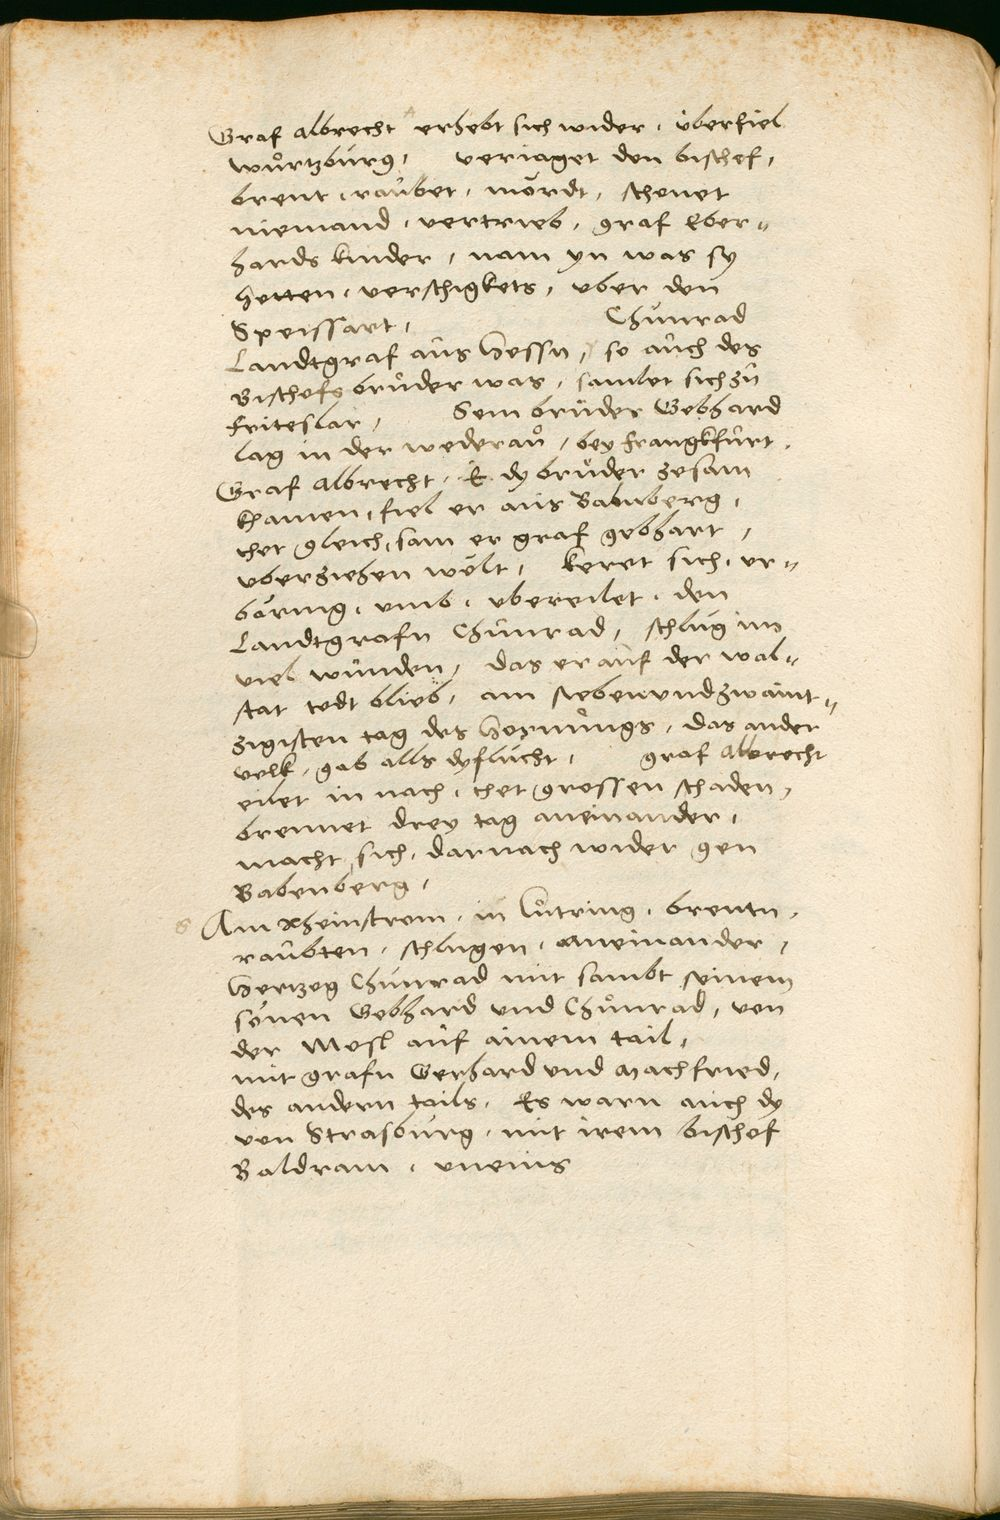 Graf Albrecht erhebt sich wider, überfiel
wůrtzburg, veriaget den bischof,
brent, raubet, mördt, schonet
niemand, vertrieb, graf Eber=
hards kinder, nam yn was sy
hetten, verschigkets, uber den
Speissart, Chůnrad
Landtgraf aus Hessn, so auch des
Bischofs brůder was, samlet sich zů
Friteslar, Sein brůder Gebhard
lag in der wederaů, bey frangkfurt.
Graf Albrecht, E. dy brůder zesam
khamen, fiel er aus Babnberg,
thet gleich, sam er graf gebhart,
uberziehen wölt, keret sich, ur=
baring, umb, ubereilet, den
Landtgrafn Chůnrad, schlug im
viel wunden, das er auf der wal=
stat todt blieb, am siebenundzwaint=
zigisten tag des Hornůngs, das ander
volk, gab alls dy flucht, graf Albrecht
eilet in nach, thet grossen schaden,
brennet drey tag aneinander,
macht sich, darnach wider gen
Babenberg,
Am Rheinstrom, in Lůtring, brentn,
raubten, schlugen, aneinander,
Hertzog Chůnrad mit sambt seinem
sönen Gebhard und Chůnrad, von
der Mosl auf ainem tail,
mit grafn Gerhard und Machfried,
des andern tails, Es warn auch dy
von Strasburg, mit irem bischof
Baldram, uneins